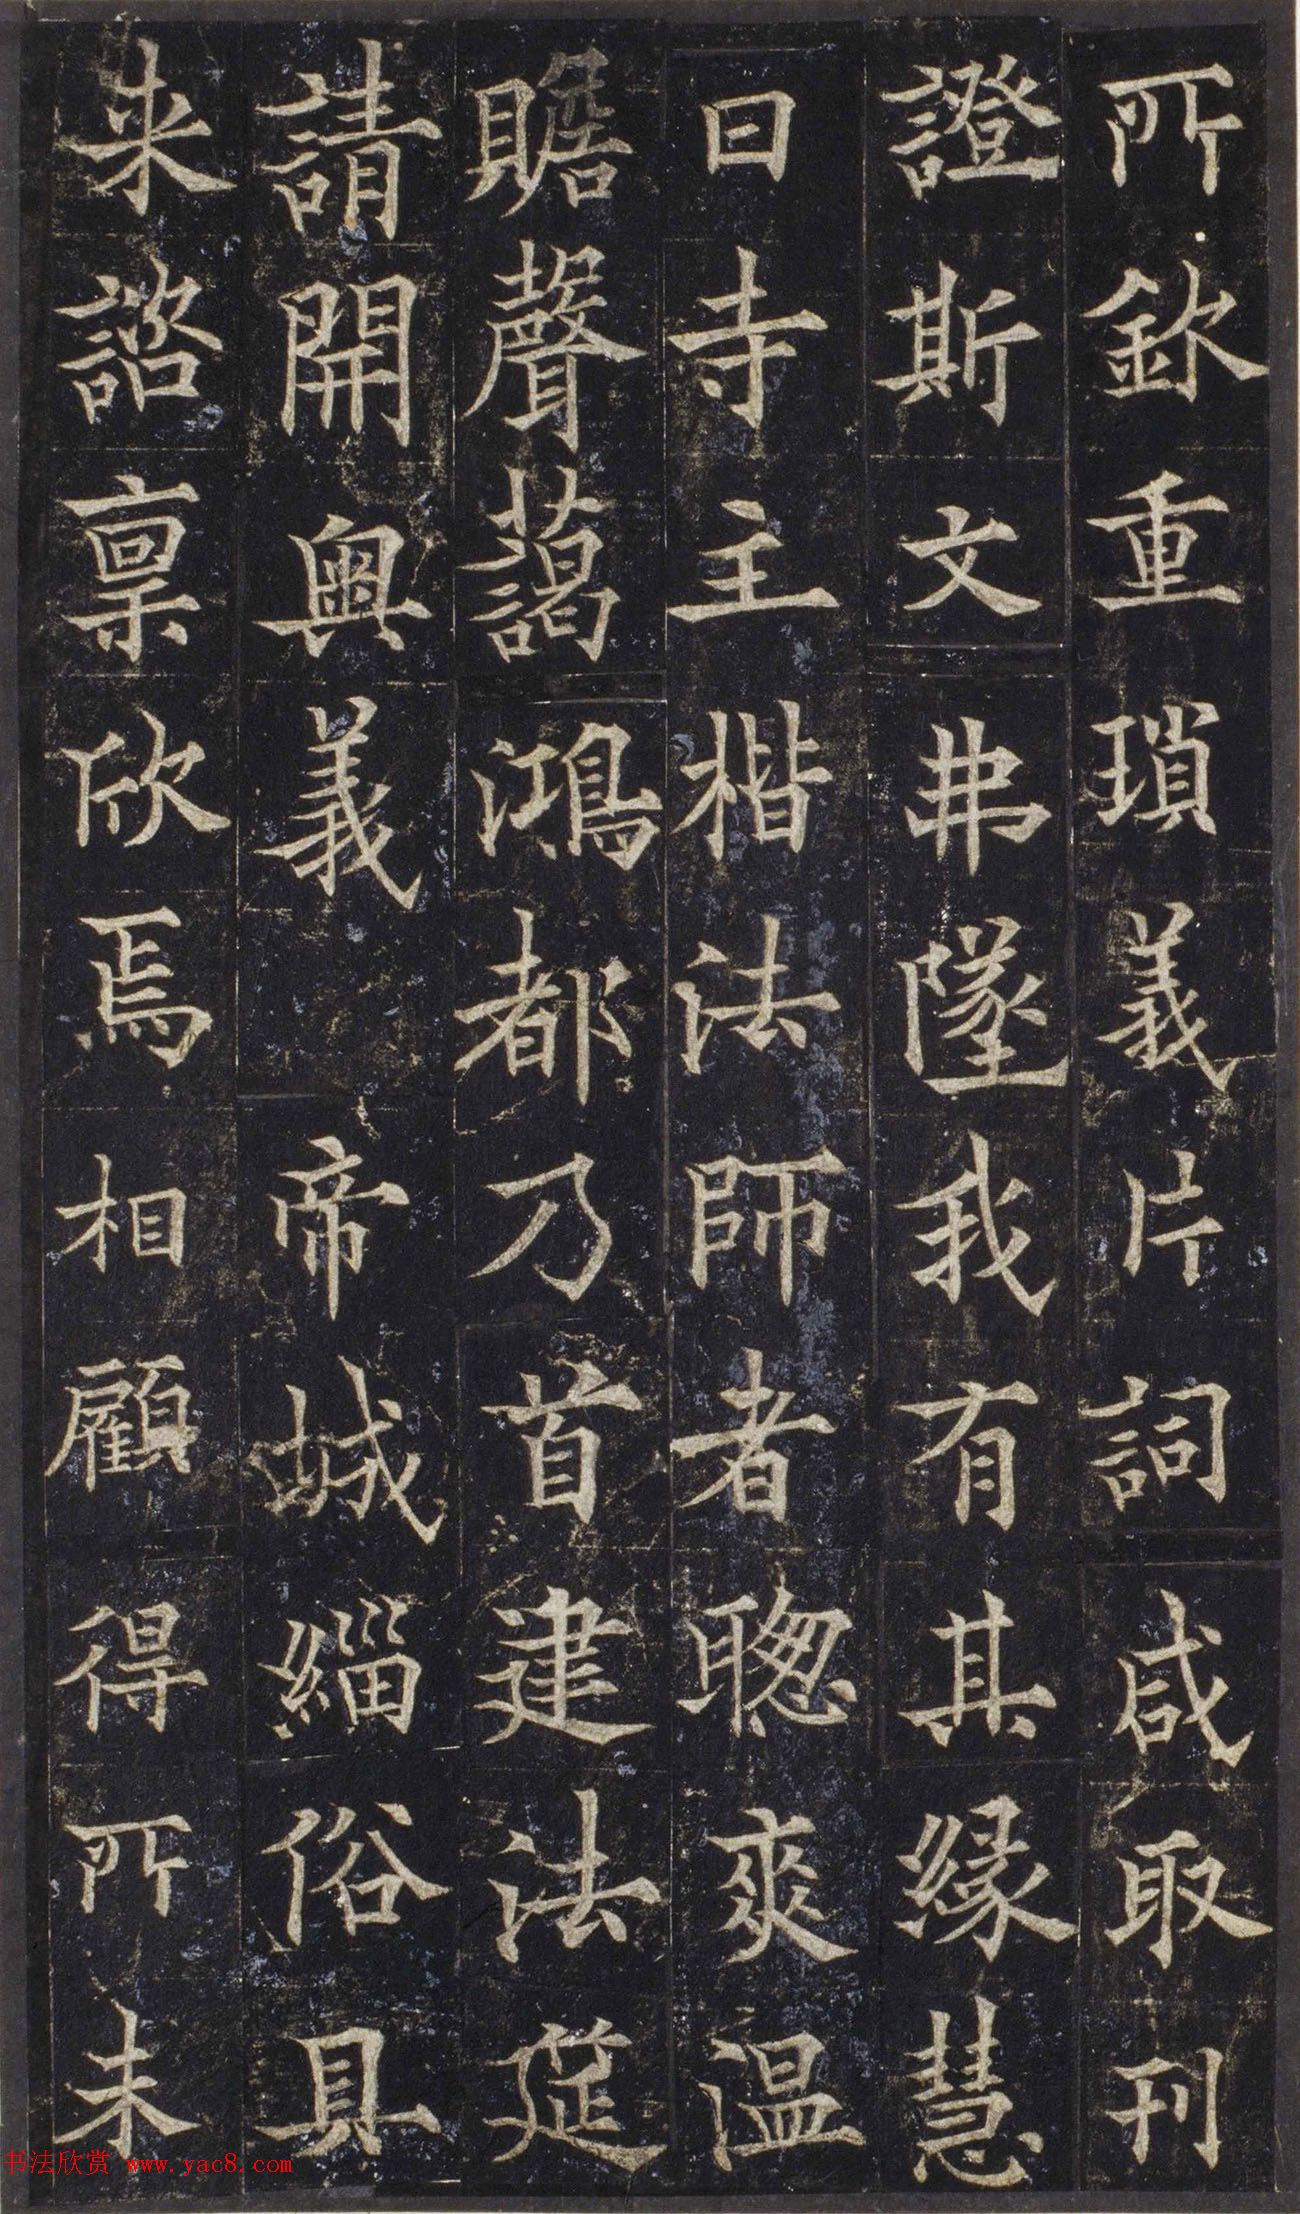 所欽重瑣義片詞咸取刊
證斯文弗墜我有其緣慧
日寺主楷法師者聰爽溫
贍聲藹鴻都乃首建法筵
請開奧義帝城緇俗具
来諮稟欣焉相顧得所未
书法欣赏 www.yac8.com